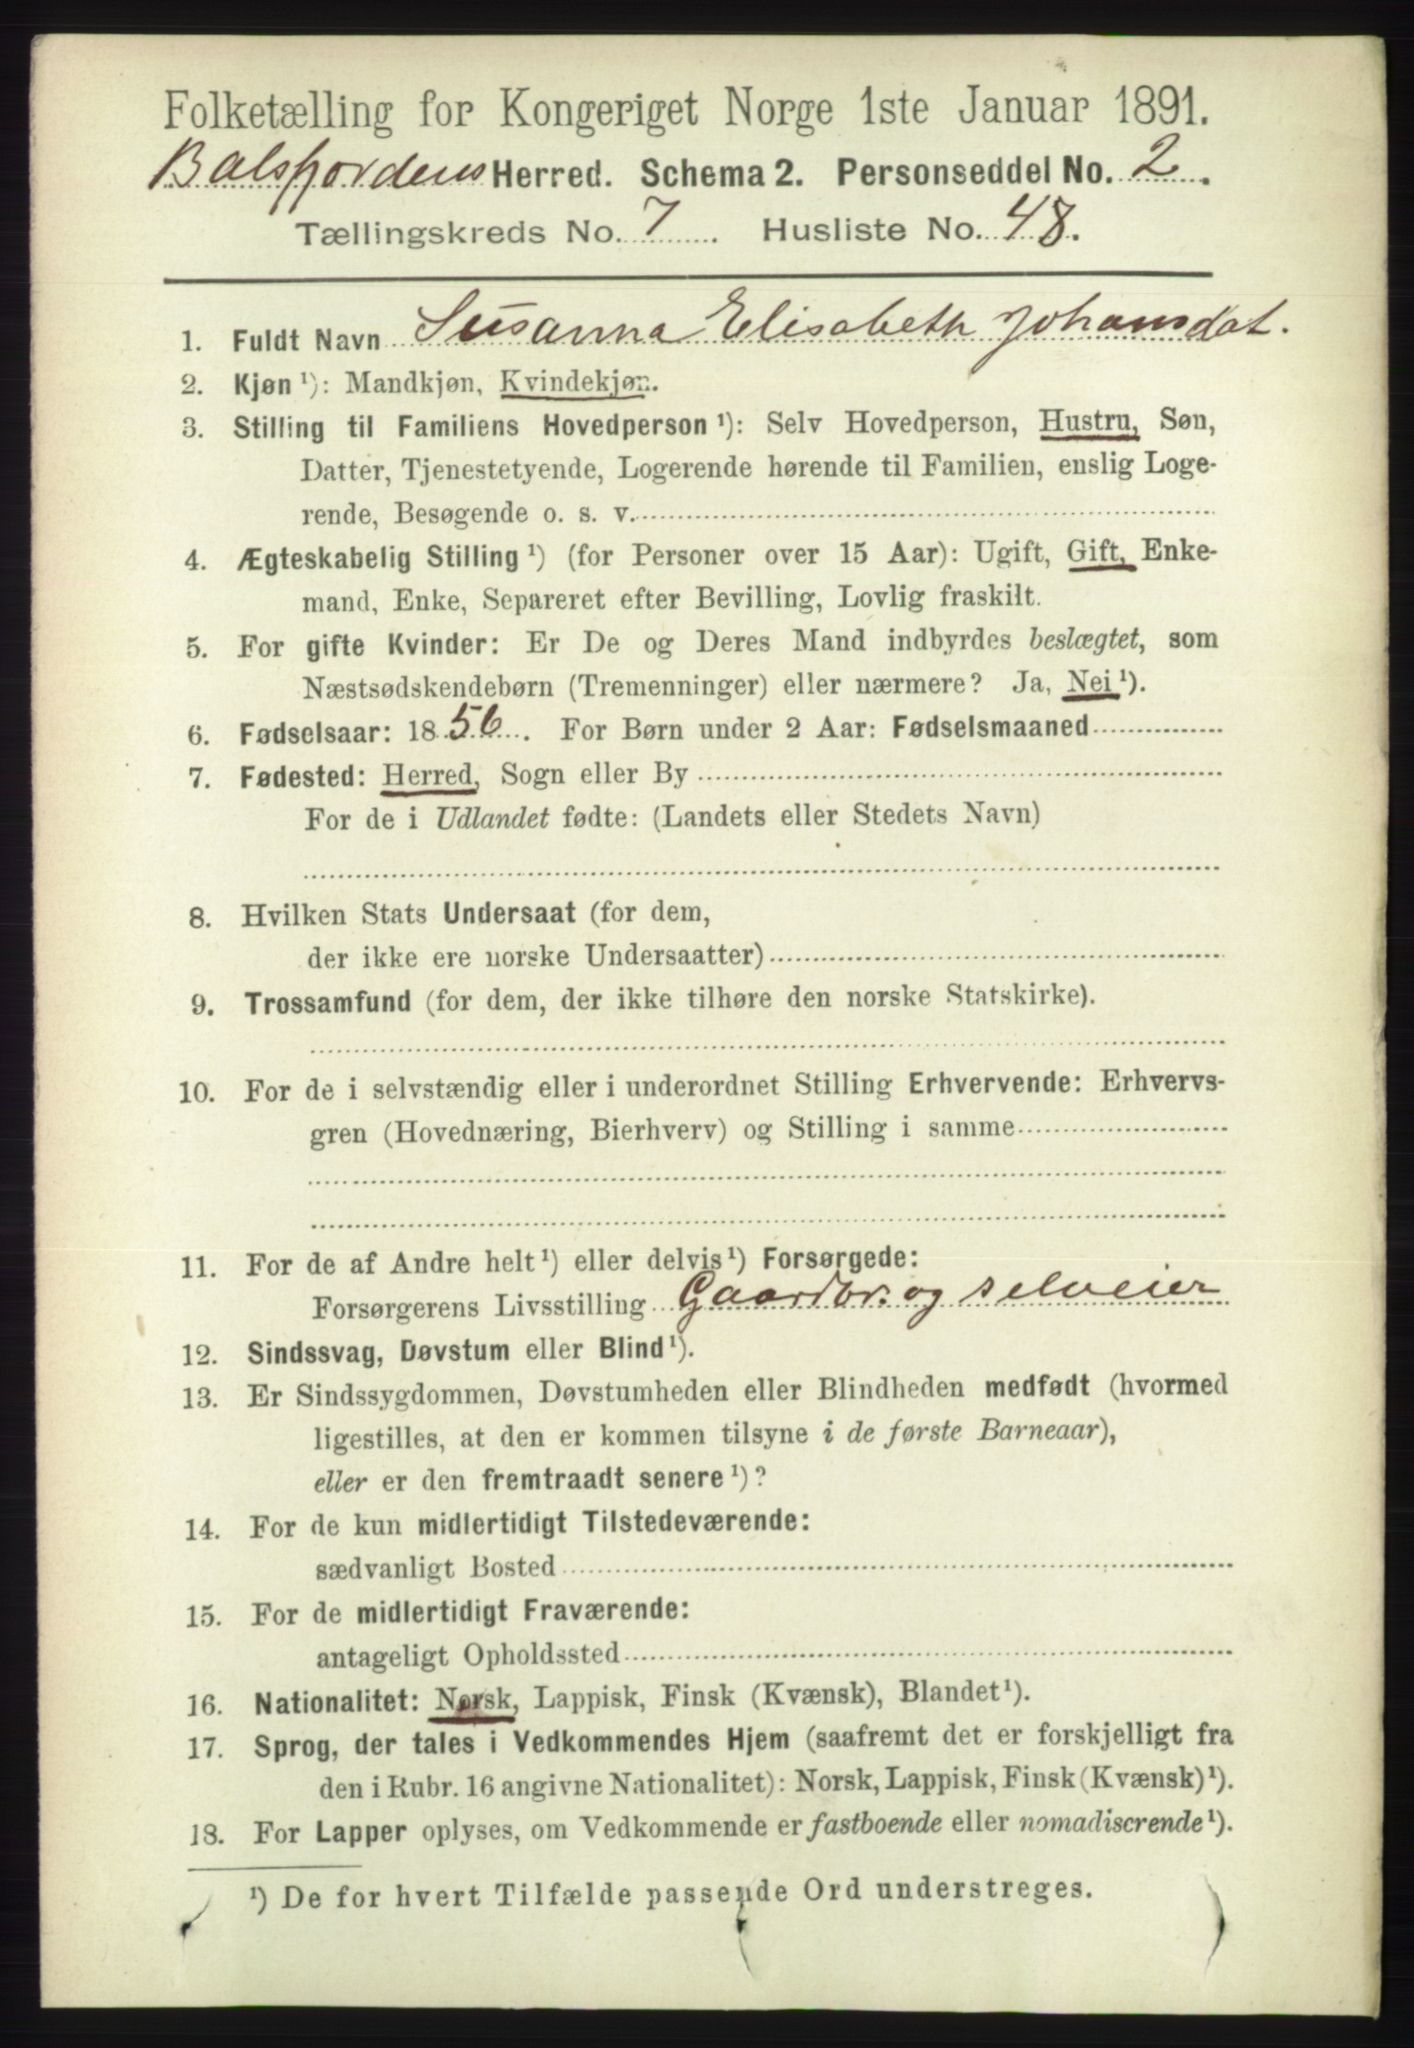 Folketælling for Kongeriget Norge 1ste Januar 1891.
Balsfjordens Herred. Schema 2. Personseddel No. 2.
Tællingskreds No. 7. Husliste No. 48.
1. Fuldt Navn Susanna Elisabeth Johansdat.
2. Kjøn ¹): Mandkjøn, Kvindekjøn.
3. Stilling til Familiens Hovedperson ¹): Selv Hovedperson, Hustru, Søn,
Datter, Tjenestetyende, Logerende hørende til Familien, enslig Loge-
rende, Besøgende o. s. v.
4. Ægteskabelig Stilling ¹) (for Personer over 15 Aar): Ugift, Gift, Enke-
mand, Enke, Separeret efter Bevilling, Lovlig fraskilt.
5. For gifte Kvinder: Er De og Deres Mand indbyrdes beslægtet, som
Næstsødskendebørn (Tremenninger) eller nærmere? Ja, Nei ¹).
6. Fødselsaar: 1856. For Børn under 2 Aar: Fødselsmaaned
7. Fødested: Herred, Sogn eller By
For de i Udlandet fødte: (Landets eller Stedets Navn)
8. Hvilken Stats Undersaat (for dem,
der ikke ere norske Undersaatter)
9. Trossamfund (for dem, der ikke tilhøre den norske Statskirke).
10. For de i selvstændig eller i underordnet Stilling Erhvervende: Erhvervs-
gren (Hovednæring, Bierhverv) og Stilling i samme
11. For de af Andre helt ¹) eller delvis ¹) Forsørgede:
Forsørgerens Livsstilling Gaardbr. og selveier
12. Sindssvag, Døvstum eller Blind ¹).
13. Er Sindssygdommen, Døvstumheden eller Blindheden medfødt (hvormed
ligestilles, at den er kommen tilsyne i de første Barneaar),
eller er den fremtraadt senere ¹)?
14. For de kun midlertidigt Tilstedeværende:
sædvanligt Bosted
15. For de midlertidigt Fraværende:
antageligt Opholdssted
16. Nationalitet: Norsk, Lappisk, Finsk (Kvænsk), Blandet ¹).
17. Sprog, der tales i Vedkommendes Hjem (saafremt det er forskjelligt fra
den i Rubr. 16 angivne Nationalitet): Norsk, Lappisk, Finsk (Kvænsk) ¹).
18. For Lapper oplyses, om Vedkommende er fastboende eller nomadiserende ¹).
¹) De for hvert Tilfælde passende Ord understreges.